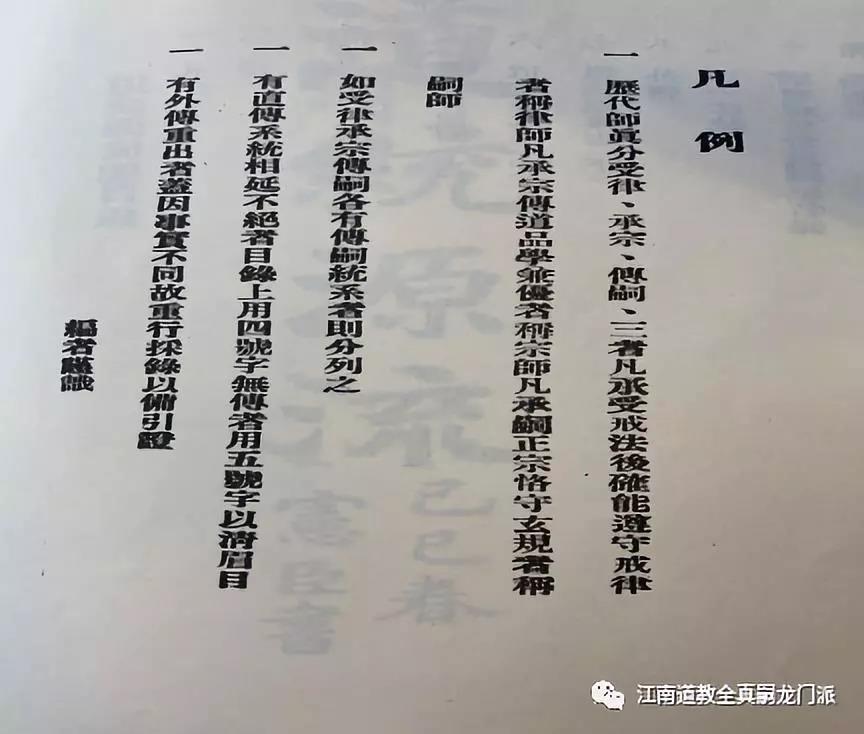 凡例
一 歷代師眞分受律、承宗、傳嗣、三者凡承受戒法後確能遵守戒律
者稱律師凡承宗傳道品學兼優者稱宗師凡承嗣正宗恪守玄規者稱
嗣師
一 如受律承宗傳嗣各有傳嗣統系者則分列之
一 有直傳系統相延不絕者目錄上用四號字無傳者用五號字以淸眉目
一 有外傳重出者蓋因事實不同故重行採錄以備引證
編者謹識
源流
己巳春
憲臣書
江南道教全真龙门派